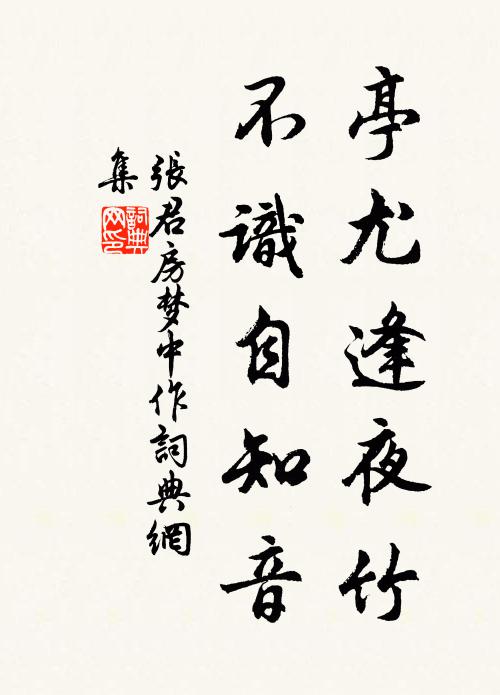 亭尤逢夜竹
不識自知音
張君房梦中作詞典網
集
詞典
网印